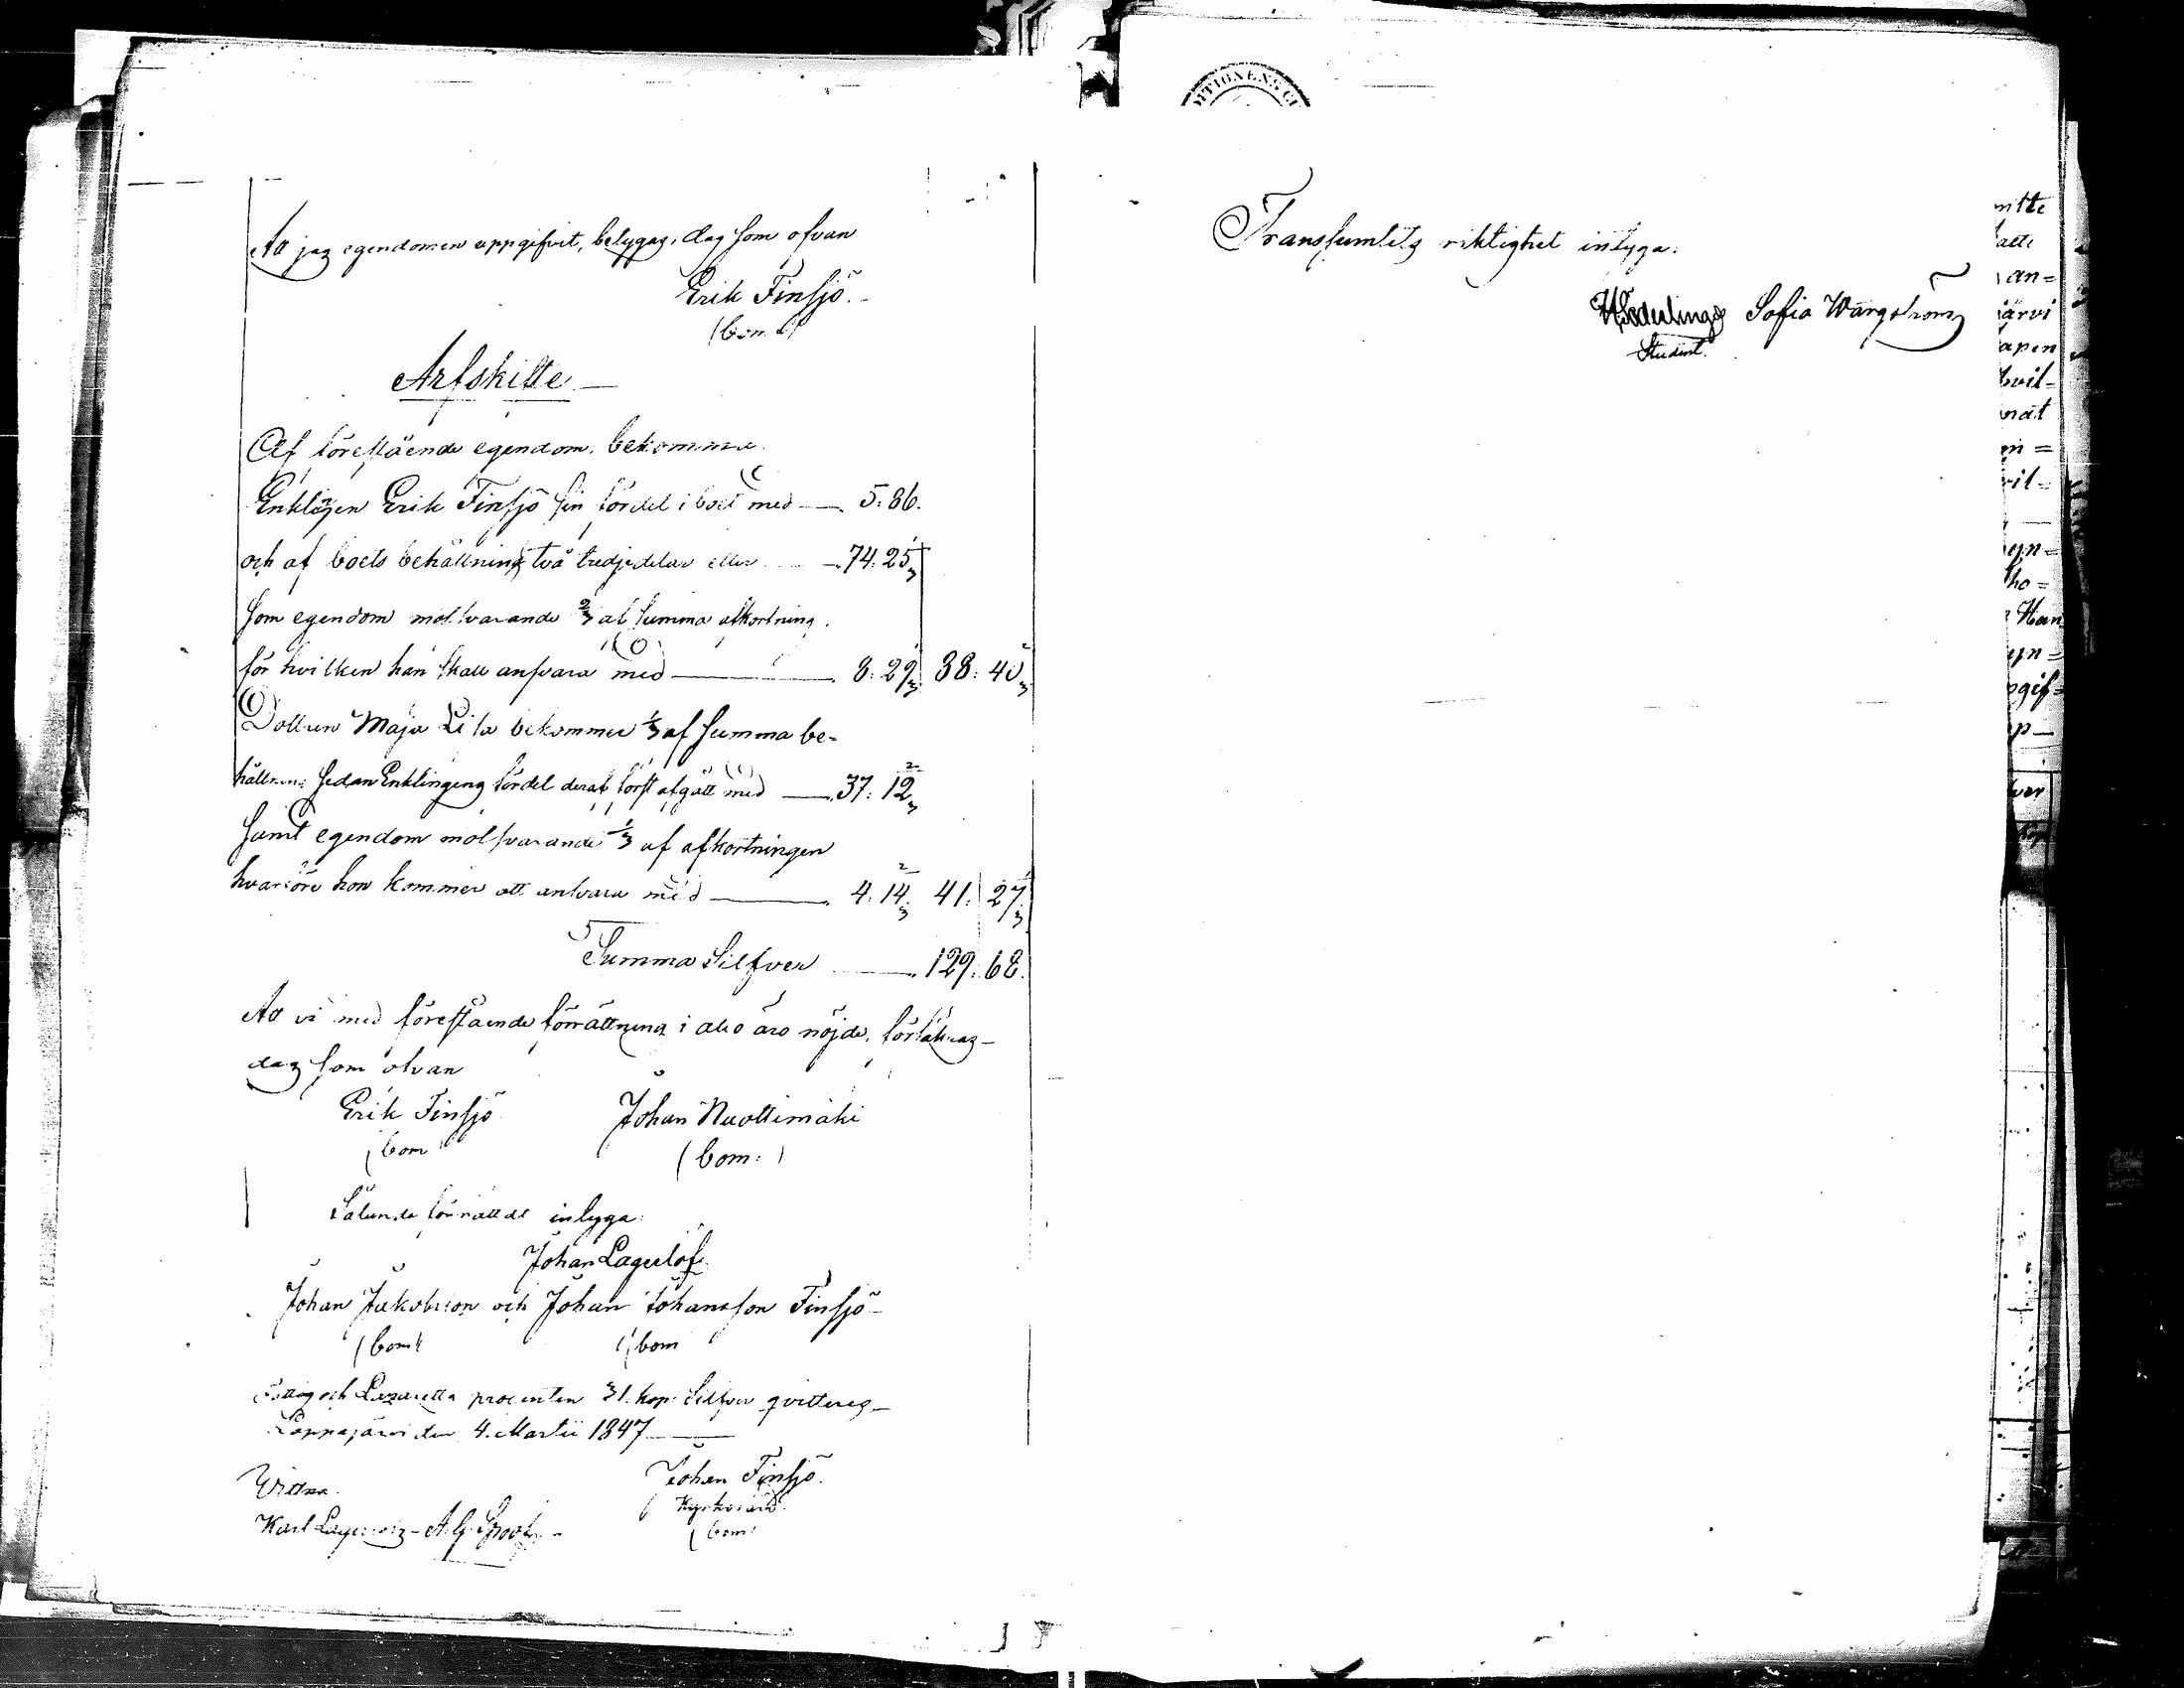 At jag egendomen uppgifvit, betygas, dag som ofvan
Erik Finsjö.
(bom.)
Arfskifte
Af förestående egendom, bekomma
Enklingen Erik Finsjö sin fördel i boet med 5: 86.
och af boets behållning två tredjedelar eller 74: 25 1/3
som egendom motsvarande 2/3 af summa afkortning
för hvilken han skall ansvara med 8: 29 1/3 88: 40 2/3
Dottren Maja Lisa bekommer 1/3 af summa be-
hållning sedan Enklingens fördel deraf först afgått med 37: 12 2/3
samt egendom motsvarande 1/3 af afkortningen
hvarföre hon kommer att ansvara med 4: 14 2/3 41: 27 1/3
Summa Silfver 129: 68.
At vi med förestående förrättning i allo äro nöjde, försäkras
dag som ofvan
Erik Finsjö Johan Nuottimäki
(bom (bom:)
Sålunda förrättadt intyga:
Johan Lagerlöf
Johan Jakobsson och Johan Johansson Finsjö
(bom) (bom
Fattig och Lazaretts procenten 31. kop. Silfver qvitteras
Lappajärvi den 4. Martii 1847
Johan Finsjö.
Vittna. Kyrkovärd.
Karl A. G. (bom)
DITIONENS
Transsumtets riktighet intyga:
Söderling Sofia Wängström
Student.